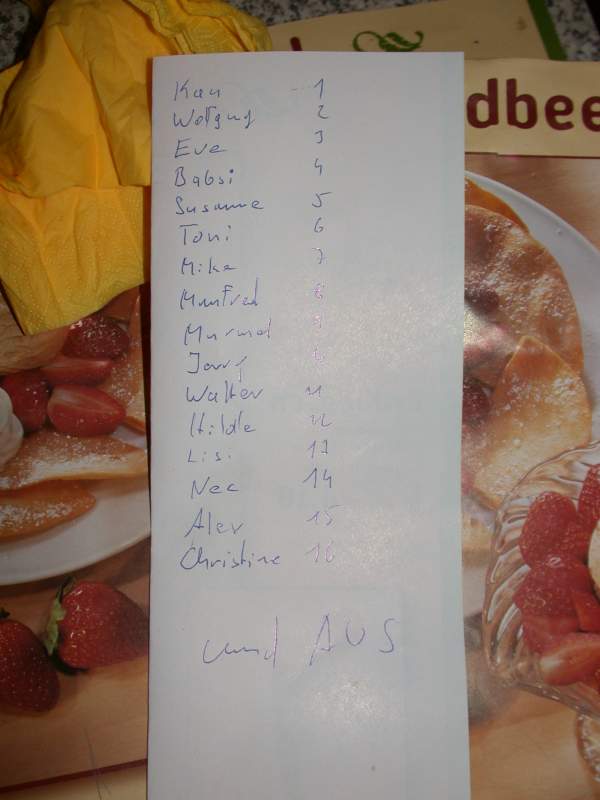 dbee
Kan 1
Wolfgang 2
Eva 3
Babsi 4
Susanne 5
Toni 6
Mike 7
Manfred 8
9
10
Walter 11
Hilde 12
Lisi 13
Nec 14
Alex 15
Christine 16
und AUS